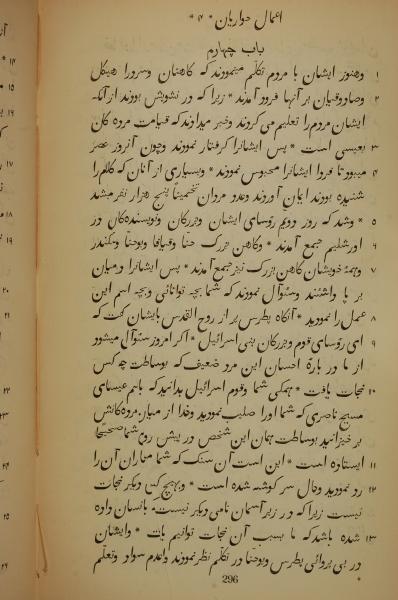 اعمال حواریان * ۴ *
باب چهارم
۱ وهنوز ایشان با مردم تکلم مینمودند که کاهنان وسردار هیکل
۲ وصادوقیان بر آنها فرود آمدند * زیرا که در تشویش بودند از آنکه
ایشان مردم را تعلیم می کردند وخبر میدادند که قیامت مرده کان
۳ بعیسی است * پس ایشانرا گرفتار نمودند وچون آنروز عصر
۴ میبود تا فردا ایشانرا محبوس نمودند * وبسیاری از آنان که کلام را
شنیده بودند ایمان آوردند وعدد مردان تخمیناً پنج هزار نفر میشد
۵ * وشد که روز دویم رؤسای ایشان وبزرگان ونویسنده‌کان در
۶ اورشلیم جمع آمدند * وکاهن بزرگ حنا وقیافا ویوحنا وسکندر
۷ وهمهٔ خویشان کاهن بزرگ نیز جمع آمدند * پس ایشانرا درمیان
بر پا داشتند وسئوال نمودند که شما بچه توانائی وبچه اسم این
۸ عمل را نمودید * آنگاه پطرس پر از روح القدس بایشان گفت که
۹ ای رؤسای قوم وبزرگان بنی اسرائیل * اگر امروز سئوال میشود
از ما در بارهٔ احسان این مرد ضعیف که بوساطت چه کس
۱۰ نجات یافت * همگی شما وقوم اسرائیل بدانید که باسم عیسای
مسیح ناصری که شما اورا صلیب نمودید وخدا از میان مرده‌کانش
بر خیزانید بوساطت همان این شخص در پیش روی شما صحیحاً
۱۱ ایستاده است * این است آن سنگ که شما معماران آن را
۱۲ رد نمودید وحال سر گوشه شده است * وبهیچ کس دیگر نجات
نیست زیرا که در زیر آسمان نامی دیگر نیست که بانسان داده
۱۳ شده باشد که ما بسبب آن نجات توانیم یافت * وایشان
در بی پروائی پطرس ویوحنا در تکلم نظر نمودند وعدم سواد وتعلم
296